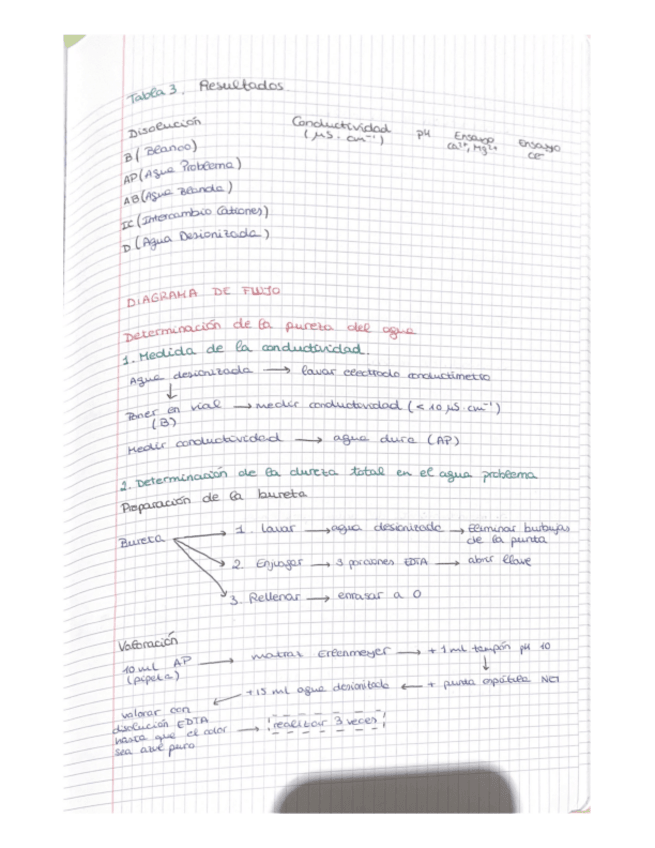 Tabla 3. Resultados
Disolución Conductividad (µS·cm⁻¹) pH Ensayo Ca²⁺, Mg²⁺ Ensayo Cl⁻
B (Blanco)
AP (Agua Problema)
AB (Agua Blanda)
IC (Intercambio Cationes)
D (Agua Desionizada)
DIAGRAMA DE FLUJO
Determinación de la pureza del agua
1. Medida de la conductividad.
Agua desionizada → lavar electrodo conductímetro
↓
Poner en vial → medir conductividad (< 10 µS cm⁻¹)
(B)
Medir conductividad → agua dura (AP)
2. Determinación de la dureza total en el agua problema
Preparación de la bureta
Bureta → 1. Lavar → agua desionizada → Eliminar burbujas
de la punta
→ 2. Enjuagar → 3 porciones EDTA → abrir llave
→ 3. Rellenar → enrasar a 0
Valoración
10 ml AP → matraz Erlenmeyer → + 1 ml tampón pH 10
(pipeta) ↓
+ 15 ml agua desionizada ← + punta espátula NET
valorar con
disolución EDTA
hasta que el color → realizar 3 veces
sea azul puro